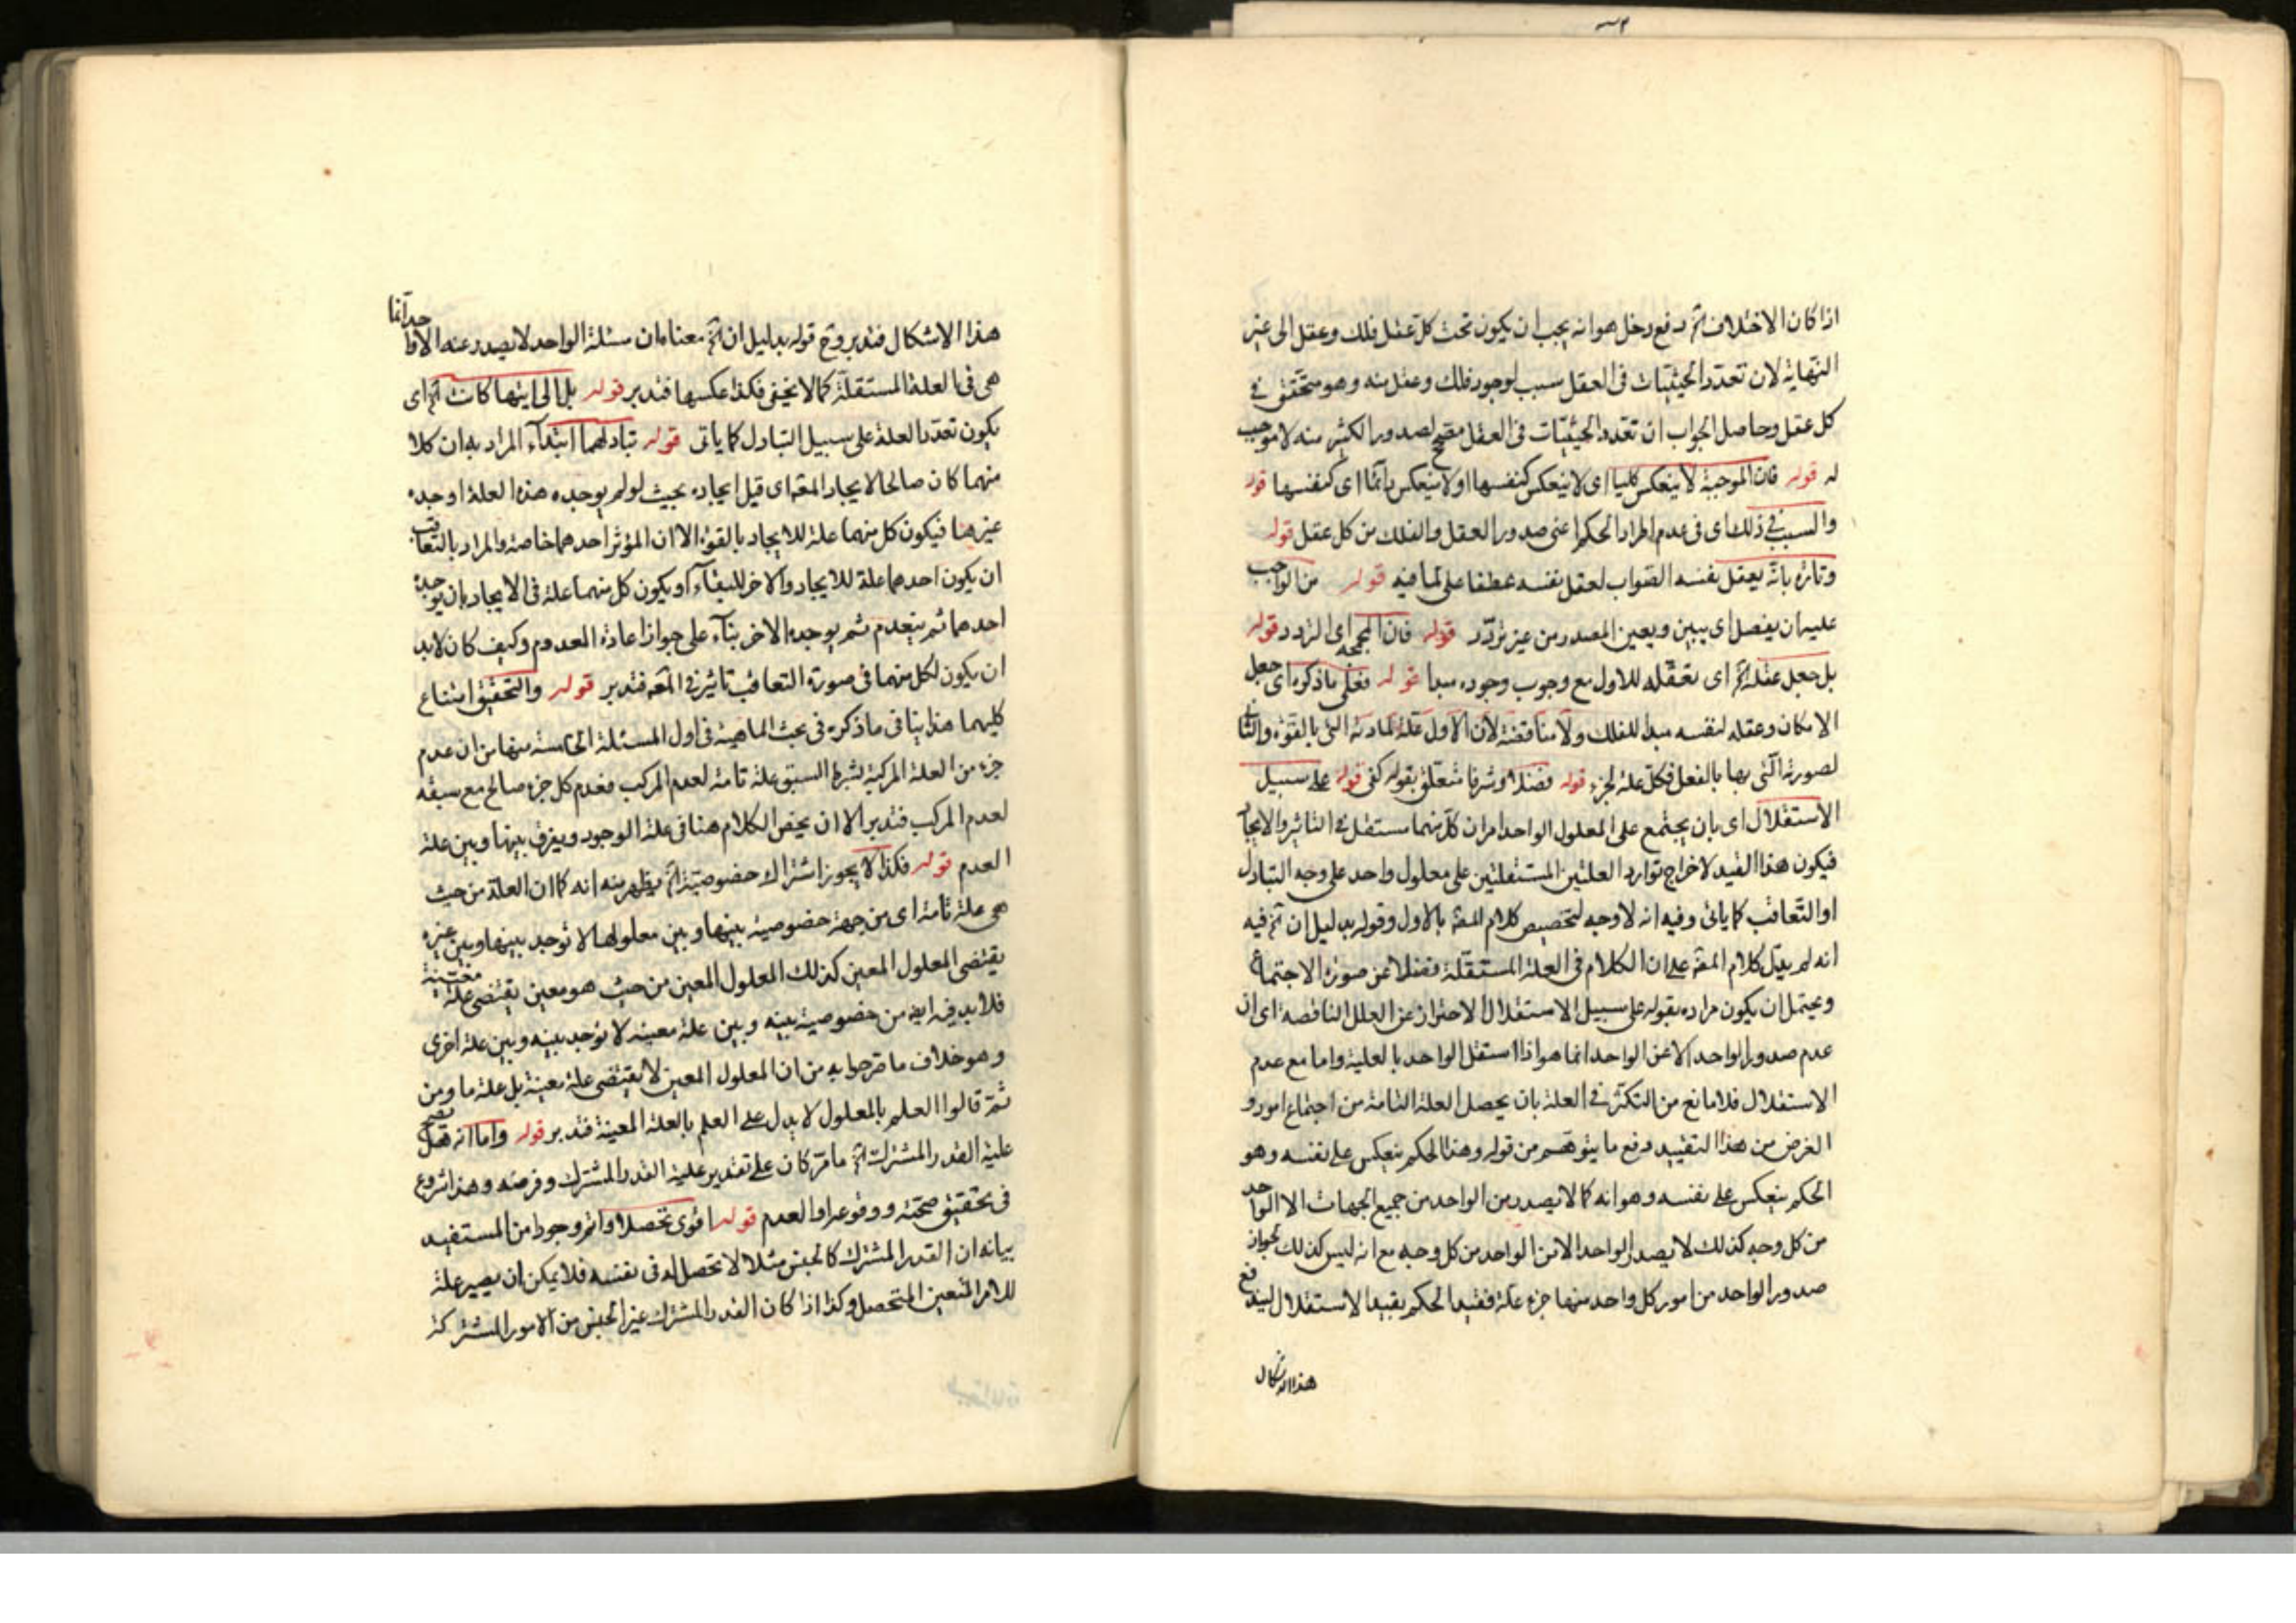 اذا كان الاختلاف آه دفع دخل هو انه يجب ان يكون تحت كل عقل فلك وعقل الى غير
النهاية لان تعدد الحيثيات فى العقل سبب لوجود فلك وعقل منه وهو متحقق فى
كل عقل وحاصل الجواب ان تعدد الحيثيات فى العقل مصحح لصدور الكثير منه لا موجب
له قوله فان الموجبة لا ينعكس كليا اى لا ينعكس كنفسها او لا ينعكس دائما اى كنفسها قوله
والسبب فى ذلك اى فى عدم اطراد الحكم اعنى صدور العقل والفلك من كل عقل قوله
وتارة بانه يعقل بنفسه الصواب لعقل نفسه عطفا على لما فيه قوله من الواجب
عليه ان يفصل اى يبين ويعين المصدر من غير تردد قوله فان المجمجة اى التردد قوله
بل جعل عقله آه اى تعقله للاول مع وجوب وجوده مبدا قوله فعلى ما ذكره اى جعل
الامكان وعقله لنفسه مبدا للفلك ولا مناقضة لان الاول علة لمادته التى بالقوة والثانى
لصورته التى بها بالفعل فكل علة لجزء قوله فضلا وشرفا متعلق بقوله كفى قوله على سبيل
الاستقلال اى بان يجتمع على المعلول الواحد امران كل منهما مستقل فى التاثير والايجاد
فيكون هذا القيد لاخراج توارد العلتين المستقلتين على معلول واحد على وجه التبادل
او التعاقب كما ياتى وفيه انه لا وجه لتخصيص كلام المصـ بالاول وقوله بدليل ان آه فيه
انه لم يدل كلام المصـ على ان الكلام فى العلة المستقلة فضلا عن صورة الاجتماع
ويحتمل ان يكون مراده بقوله على سبيل الاستقلال الاحتراز عن العلل الناقصة اى ان
عدم صدور الواحد الا عن الواحد انما هو اذا استقل الواحد بالعلية واما مع عدم
الاستقلال فلا مانع من التكثر فى العلة بان يحصل العلة التامة من اجتماع امور و
الغرض من هذا التقييد دفع ما يتوهم من قوله وهذا الحكم ينعكس على نفسه وهو
الحكم ينعكس على نفسه وهو انه كما لا يصدر من الواحد من جميع الجهات الا الواحد
من كل وجه كذلك لا يصدر الواحد الا من الواحد من كل وجه مع انه ليس كذلك لجواز
صدور الواحد من امور كل واحد منها جزء علة فقيد الحكم بقيد الاستقلال ليندفع
هذا الاشكال
هذا الاشكال فتدبر وح قوله بدليل ان آه معناه ان مسئلة الواحد لا يصدر عنه الا الواحد انما
هى فى العلة المستقلة كما لا يخفى فكذا عكسها فتدبر قوله بل الى ايتها كانت آه اى
يكون تعدد العلة على سبيل التبادل كما ياتى قوله تبادلهما ابتداء المراد به ان كلا
منهما كان صالحا لايجاد المعـ اى قبل ايجاده بحيث لو لم يوجده هذه العلة اوجده
غيرها فيكون كل منهما علة للايجاد بالقوة الا ان المؤثر احدهما خاصة والمراد بالتعاقب
ان يكون احدهما علة للايجاد والاخر للبقاء او يكون كل منهما علة فى الايجاد بان يوجده
احدهما ثم ينعدم ثم يوجده الاخر بناء على جواز اعادة المعدوم وكيف كان لابد
ان يكون لكل منهما فى صورة التعاقب تاثير فى المعـ فتدبر قوله والتحقيق امتناع
كليهما هذا ينافى ما ذكره فى بحث الماهية فى اول المسئلة الخامسة منها من ان عدم
جزء من العلة المركبة بشرط السبق علة تامة لعدم المركب فعدم كل جزء صالح مع سبقه
لعدم المركب فتدبر الا ان يخص الكلام هنا فى علة الوجود ويفرق بينها وبين علة
العدم قوله فكذا لا يجوز اشتراك خصوصية آه يظهر منه انه كما ان العلة من حيث
هى علة تامة اى من جهة خصوصية بينها وبين معلولها لا توجد بينها وبين غيره
يقتضى المعلول المعين كذلك المعلول المعين من حيث هو معين يقتضى علة معينة
فلا بد فيه ايضـ من خصوصية بينه وبين علة معينة لا توجد بينه وبين علة اخرى
وهو خلاف ما صرحوا به من ان المعلول المعين لا يقتضى علة معينة بل علة ما ومن
ثمة قالوا العلم بالمعلول لا يدل على العلم بالعلة المعينة فتدبر قوله واما انه هل يصح
علية القدر المشترك آه ما مر كان على تقدير علية القدر المشترك وفرضه وهذا شروع
فى تحقيق صحته ووقوعه او العدم قوله اقوى تحصلا واتم وجودا من المستفيد
بيانه ان القدر المشترك كالجنس مثلا لا تحصل له فى نفسه فلا يمكن ان يصير علة
للامر المتعين المتحصل وكذا اذا كان القدر المشترك غير الجنس من الامور المشتركة